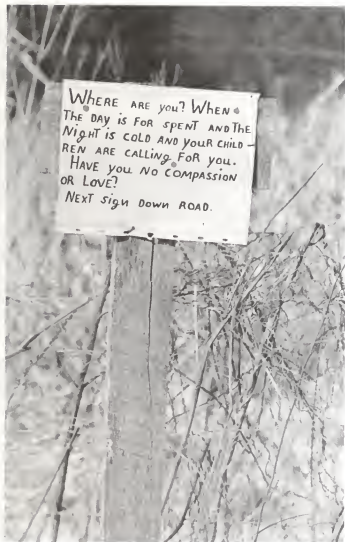 WHERE ARE YOU? WHEN
THE DAY IS FOR SPENT AND THE
NIGHT IS COLD AND YOUR CHILD-
REN ARE CALLING FOR YOU.
HAVE YOU NO COMPASSION
OR LOVE?
NEXT SIGN DOWN ROAD.